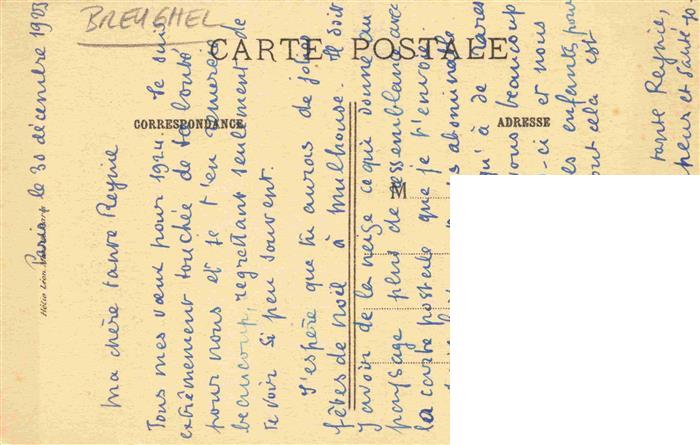 BREUGHEL
CARTE POSTALE
CORRESPONDANCE
ADRESSE
M
Hélio Léon
Paris le 30 décembre 1923
Ma chère tante Reynie
Tous mes vœux pour 1924. Je suis
extrêmement touchée de ta bonté
pour nous et je t'en remercie
beaucoup, regrettant seulement de
te voir si peu souvent.
J'espère que tu auras de jolies
fêtes de Noël à Mulhouse. Il doit
y avoir de la neige ce qui donne au
paysage plus de ressemblance avec
la carte postale que je t'envoie
abominable
qu'à de rares
vous beaucoup
-ci et nous
es enfants pour
out cela est
tante Reynie,